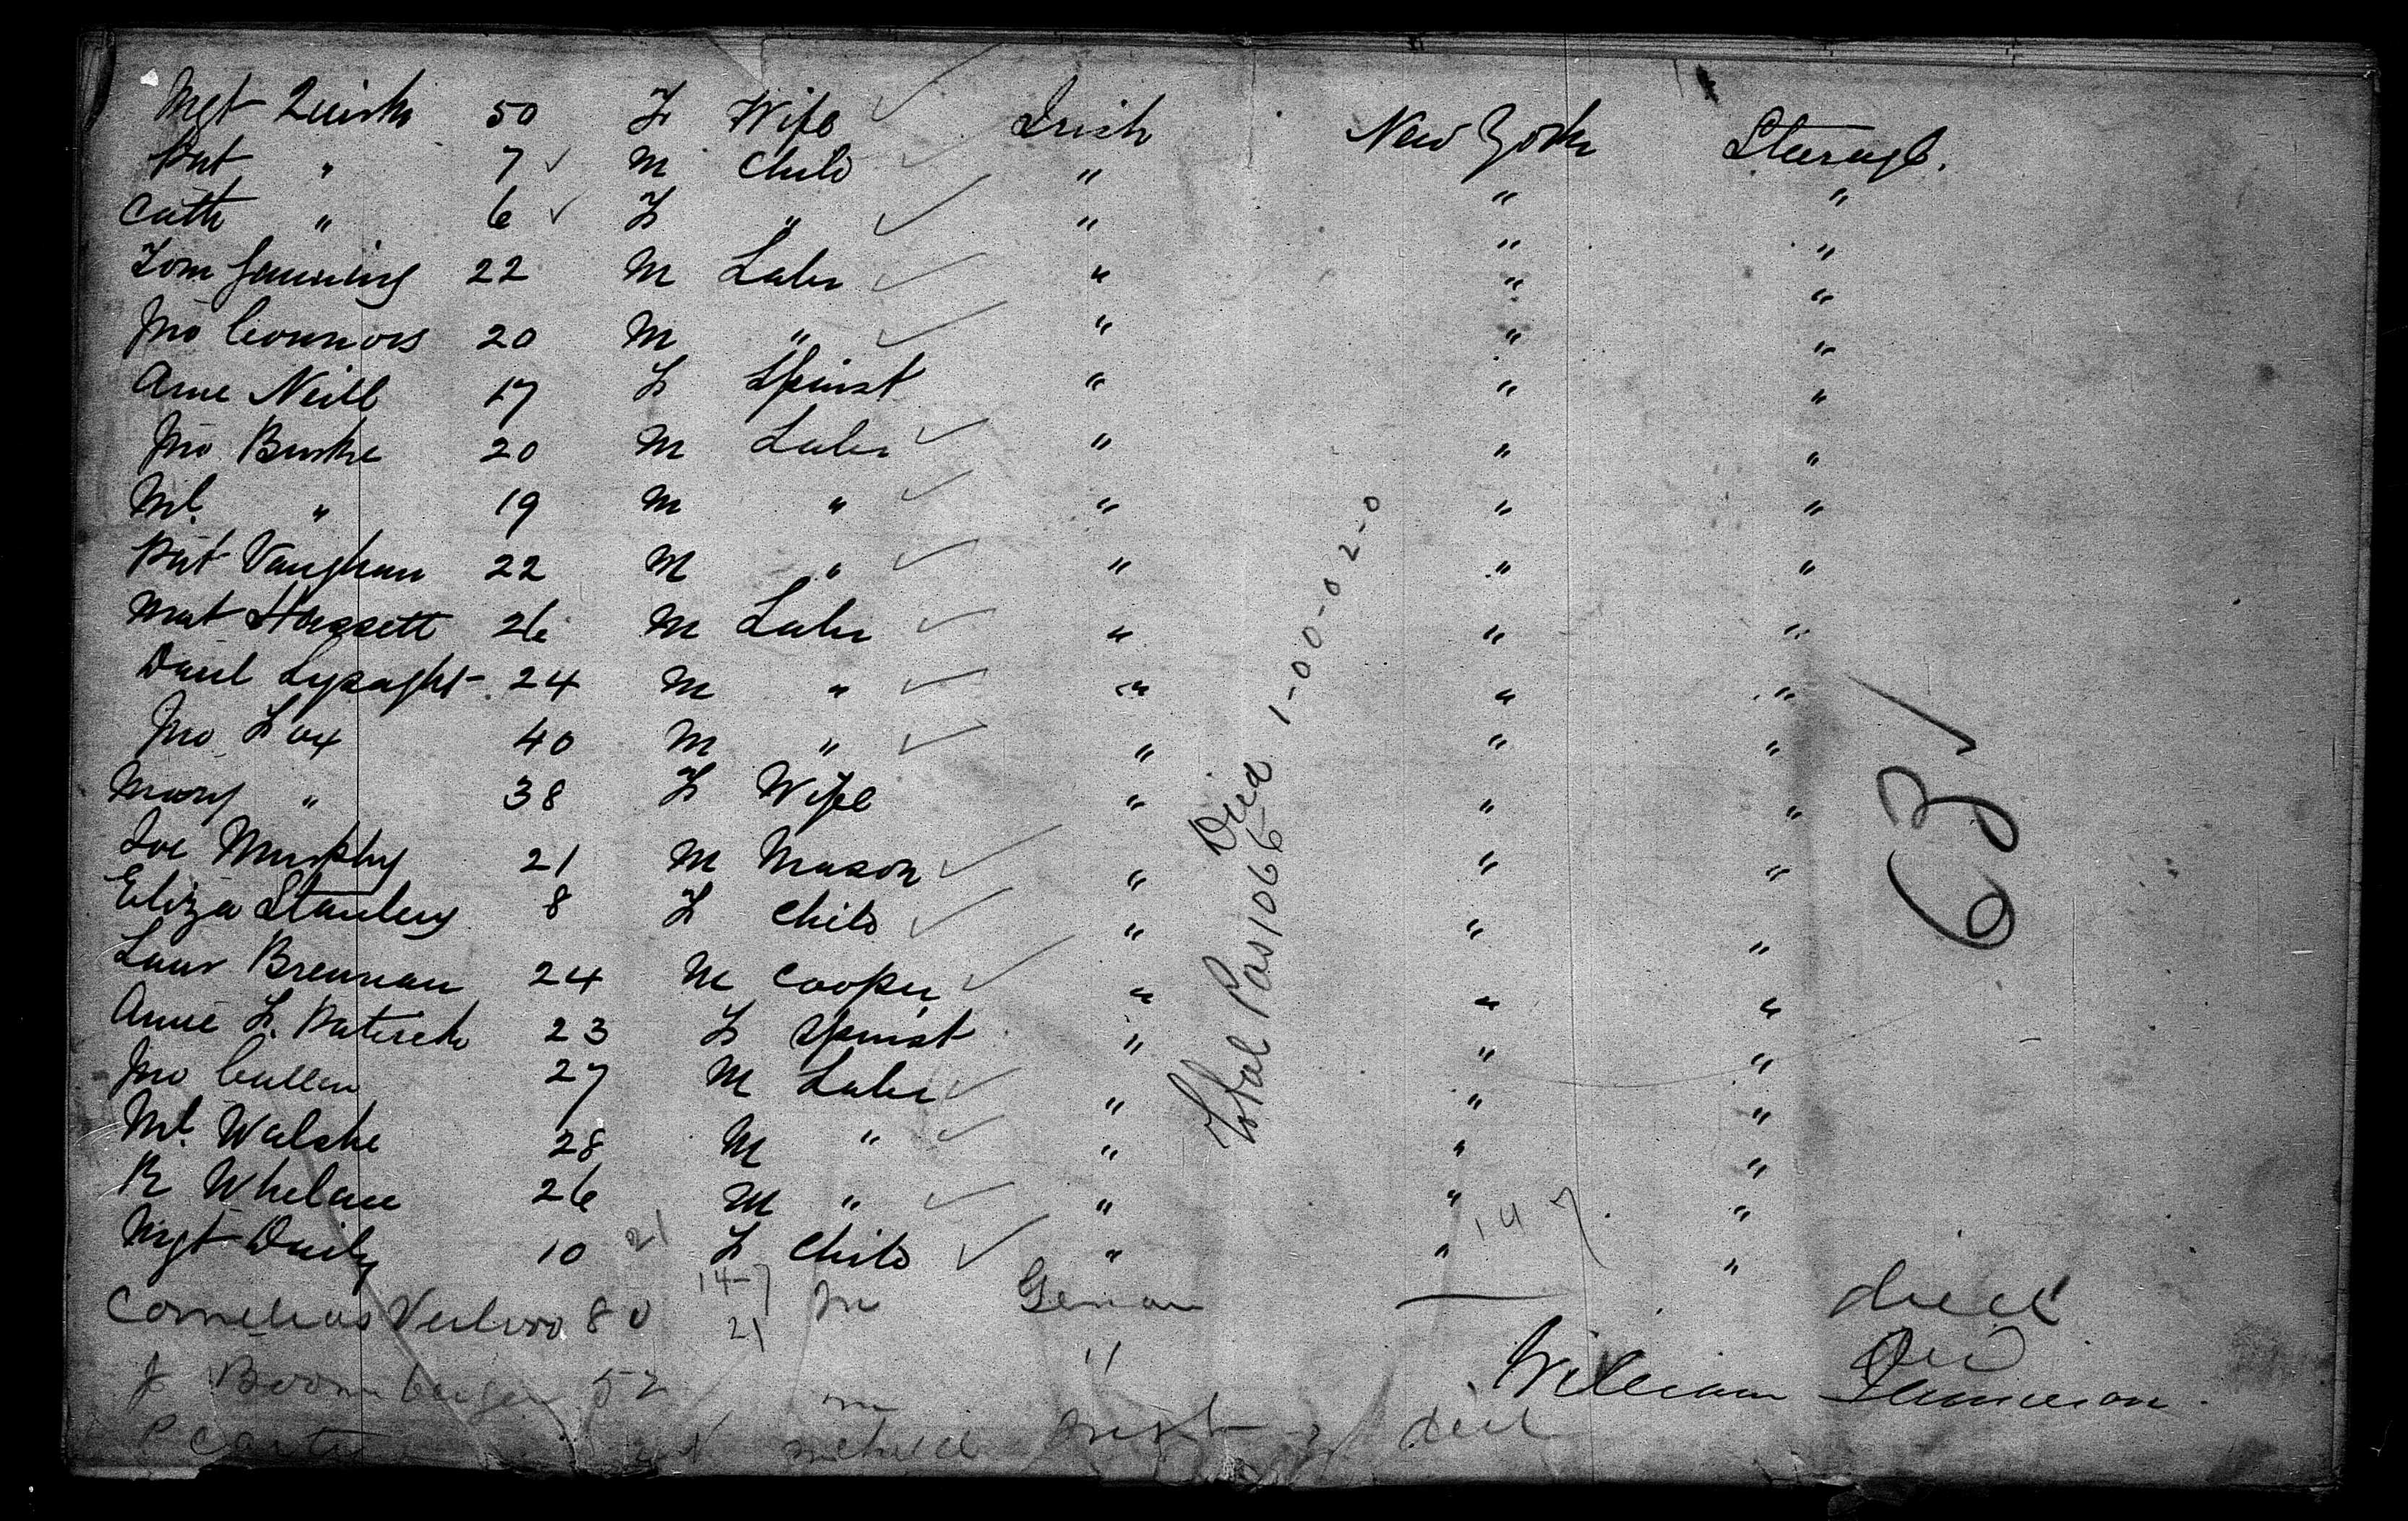 Mgt Quirk 50 F Wife Irish New York Steerage.
Pat " 7 M Child " " "
Cath " 6 F " " " "
Tom Jenning 22 M Labr " " "
Jno Connors 20 M " " " "
Anne Neill 17 F Spinst " " "
Jno Burke 20 M Labr " " "
Ml. " 19 M " " " "
Pat Vaughan 22 M " " " "
Mat Hassett 26 M Labr " " "
Danl Lysaght 24 M " " " "
Jno Fox 40 M " " " "
Mary " 38 F Wife " " "
Joe Murphy 21 M Mason " " "
Eliza Stanley 8 F Child " " "
Laur Brennan 24 M Cooper " " "
Anne F. 23 F Spinst " " "
Jno Cullen 27 M Labr " " "
Ml. Walshe 28 M " " " "
R Whelan 26 M " " " "
Mgt Daily 10 F Child " " "
21
14-7
21
147
Cornelius 80 M German died
J 52 m " Died
P died
William Jamieson
Total Pas 1066
Died 1-00-02-0
63